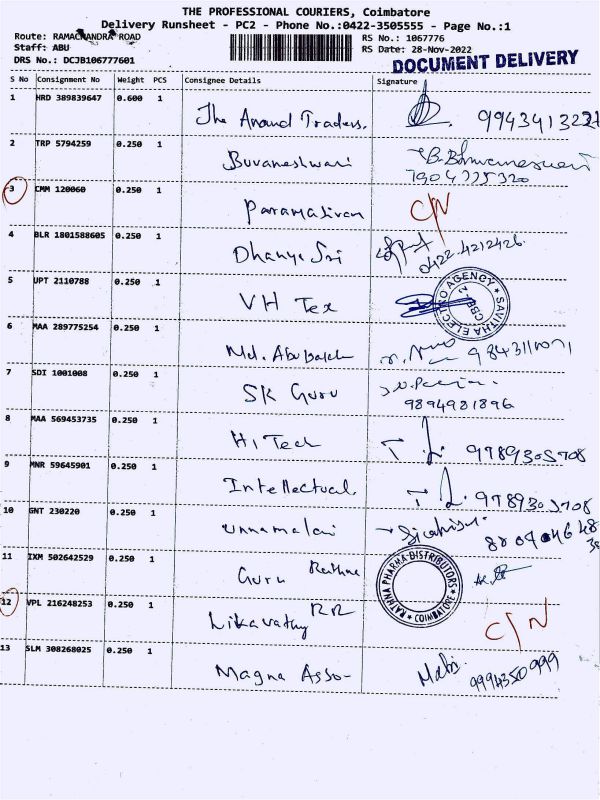 THE PROFESSIONAL COURIERS, Coimbatore
Delivery Runsheet - PC2 - Phone No.:0422-3505555 - Page No.:1
Route: RAMACHANDRA ROAD
RS No.: 1067776
Staff: ABU
RS Date: 28-Nov-2022
DRS No.: DCJB106777601
DOCUMENT DELIVERY
S No Consignment No Weight PCS Consignee Details Signature
1 HRD 389839647 0.600 1
The Anand Traders.
2 TRP 5794259 0.250 1
Buvaneshwari
3 CMM 120060 0.250 1
Paramasivan C/N
4 BLR 1801588605 0.250 1
Dhanya Sri 0422-4212426
5 UPT 2110788 0.250 1
VH Tex
SAVITHA ELECTRO AGENCY
6 MAA 289775254 0.250 1
Md. Abubakh
7 SDI 1001008 0.250 1
SK Guru
9894981896
8 MAA 569453735 0.250 1
Hi Tech 9789305708
9 MNR 59645901 0.250 1
Intellectual. 9789305708
10 GNT 230220 0.250 1
Unnamalai
11 IXM 502642529 0.250 1
Guru Rathna
RATHNA PHARMA DISTRIBUTORS COIMBATORE
12 VPL 216248253 0.250 1
Likavathy RR C/N
13 SLM 308268025 0.250 1
Magna Asso- 9994350999